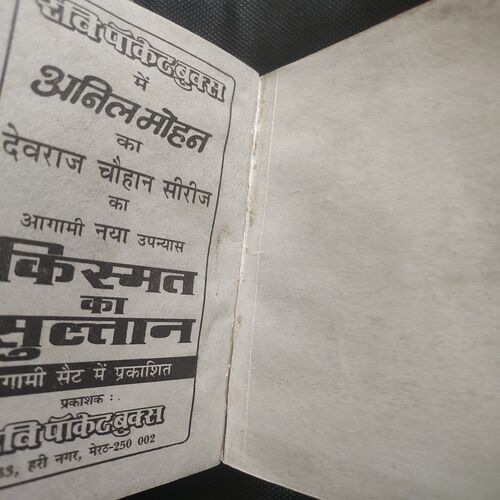 रवि पॉकेट बुक्स
में
अनिल मोहन
का
देवराज चौहान सीरीज
का
आगामी नया उपन्यास
किस्मत
का
सुल्तान
गामी सैट में प्रकाशित
प्रकाशक :
रवि पॉकेट बुक्स
33, हरी नगर, मेरठ-250 002